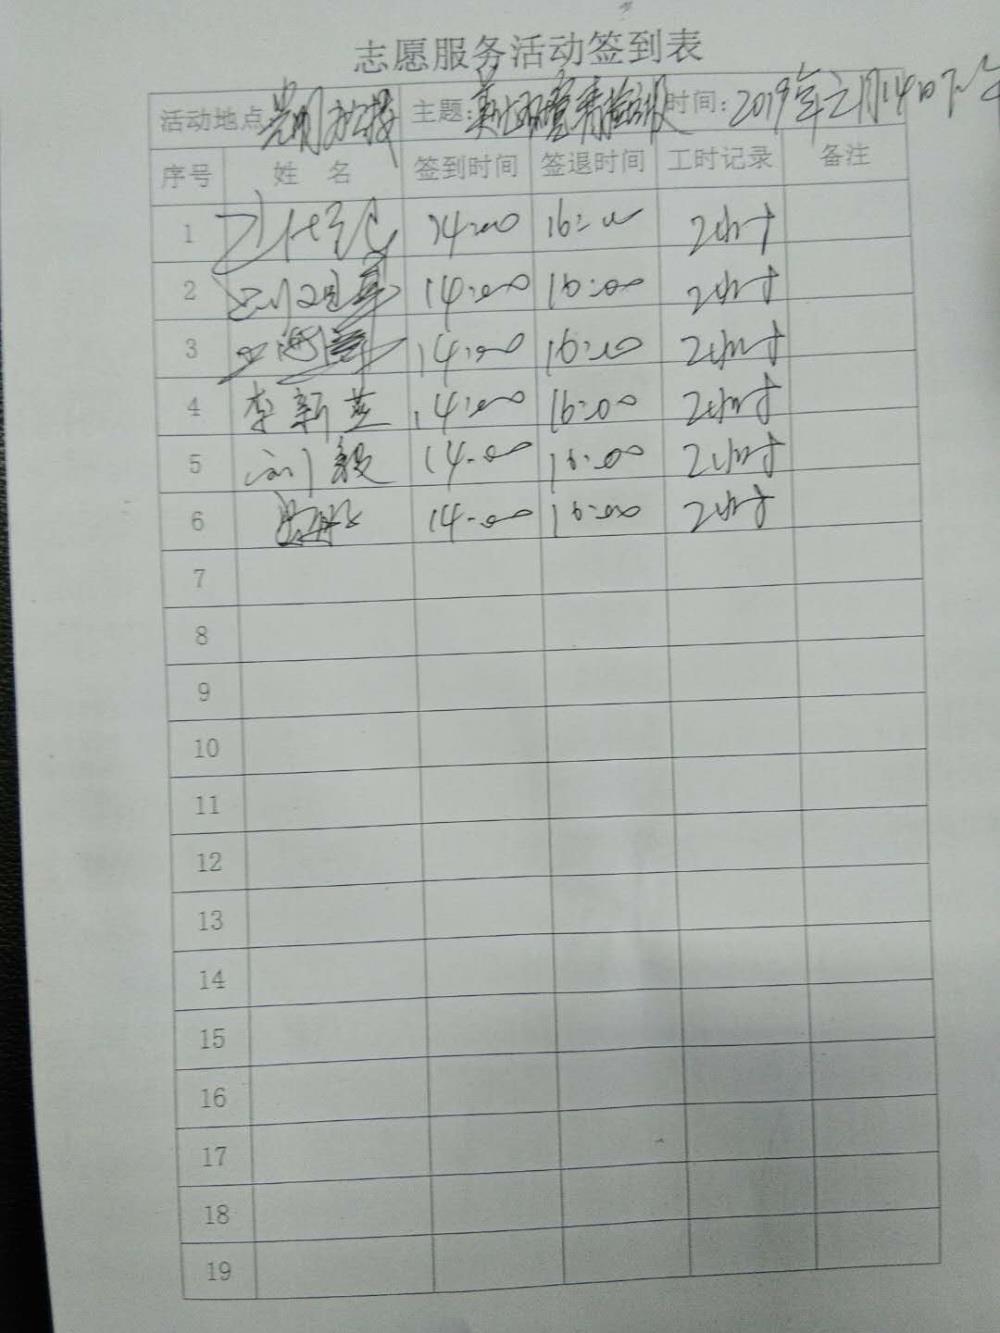 志愿服务活动签到表
活动地点 主题: 时间: 2019年二月14日下午
序号 姓 名 签到时间 签退时间 工时记录 备注
1 14:00 16:00 2小时
2 14:00 16:00 2小时
3 14:00 16:00 2小时
4 李新芝 14:00 16:00 2小时
5 刘毅 14:00 16:00 2小时
6 14:00 16:00 2小时
7
8
9
10
11
12
13
14
15
16
17
18
19